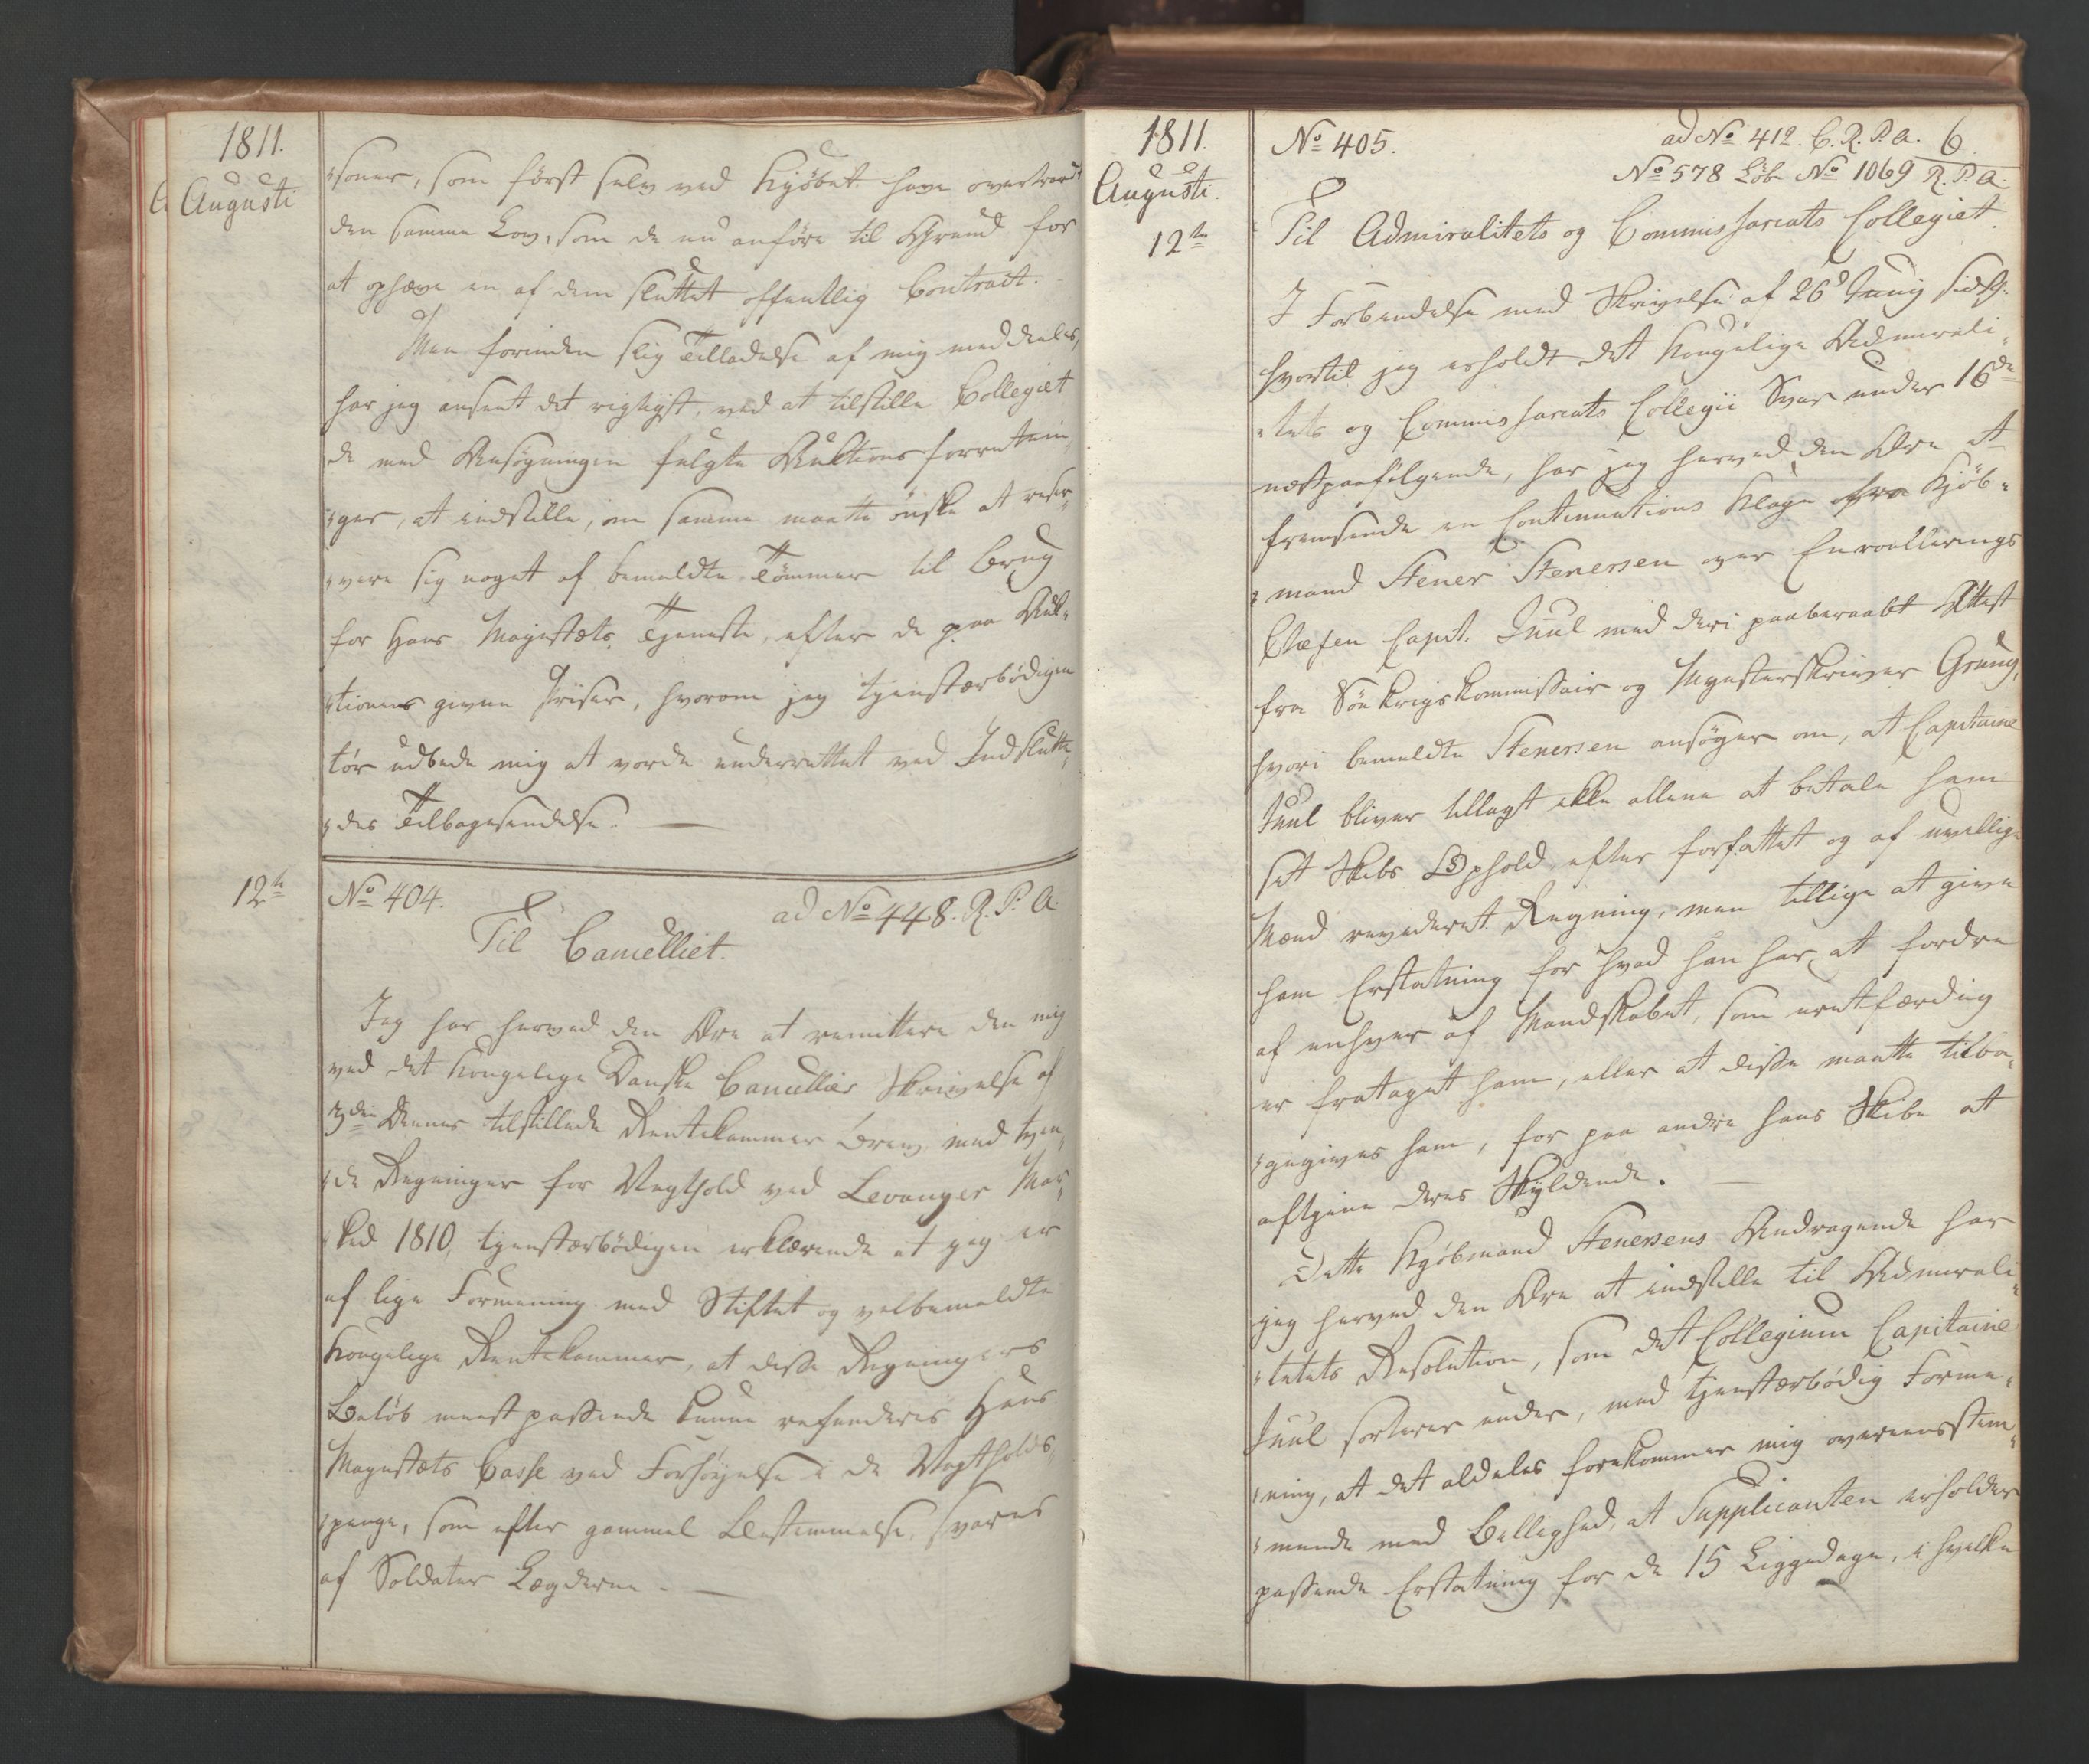 1811.
Augusti
soner, som først selv ved Kjøbet have overtraadt
den samme Lov, som de nu anføre til Grund for
at ophæve en af dem sluttet offentlig Contract.
Men forinden slig Tilladelse af mig meddeeles,
har jeg anseet det rigtigst, ved at tilstille Collegiet
de med Ansøgningen fulgte Auktions forretnin„
„ger, at indstille, om samme maatte ønske at reser„
„vere sig noget af bemeldte Tømmer til Brug
for Hans Majestæts Tjeneste, efter de paa Auk„
„tionen givne Priser, hvorom jeg tjenstærbødigen
tør udbede mig at vorde underrettet ved Indslutte„
„des Tilbagesendelse. —
12te
No 404.
ad No 448. R. P. A.
Til Cancelliet.
Jeg har herved den Ære at remittere den mig
ved det Kongelige Danske Cancellies Skrivelse af
3die Dennes tilstillede Rentekammer Brev med tven„
„de Regninger for Vagthold ved Levanger Mar„
„ked 1810, tjenstærbødigen erklærende at jeg er
af lige Formening med Stiftet og velbemeldte
Kongelige Rentekammer, at disse Regningers
Beløb meest passende kunne refunderes Hans
Majestæts Casse ved Forhøjelse i de Vagtholds„
„penge, som efter gammel Bestemmelse, svares
af Soldater Lægderne. —
1811.
Augusti.
12te
No 405.
ad No 412. C. R. P. A. 6
No 578 Løb No 1069 R. P. A.
Til Admiralitets og Commissariats Collegiet.
I Forbindelse med Skrivelse af 26d Juny sidstl.
hvortil jeg erholdt det Kongelige Admirali„
„tets og Commissariats Collegii Svar under 16de
næstpaafølgende, har jeg herved den Ære at
fremsende en Continuations Klage fra Kjøb„
„mand Stener Stenersen over Enroullerings
Chefen Capit. Juul med deri paaberaabt Attest
fra Søe Krigskommissair og Mynsterskriver Grung,
hvori bemeldte Stenersen ansøger om, at Capitaine
Juul bliver tillagt ikke allene at betale ham
sit Skibs Ophold efter forfattet og af uvillige
Mænd revideret Regning, men tillige at give
ham Erstatning for hvad han har at fordre
af enhver af Mandskabet, som uretfærdig
er frataget ham, eller at disse maatte tilba„
„gegives ham, for paa andre hans Skibe at
aftjene deres Skyldende. —
Dette Kjøbmand Stenersens Andragende har
jeg herved den Ære at indstille til Admirali„
„tetets Resolution, som det Collegium Capitaine
Juul sorterer under, med tjenstærbødig Forme„
„ning, at det aldeles forekommer mig overeensstem„
„mende med Billighed, at Supplicanten erholder
passende Erstatning for de 15 Liggedage, i hvilke